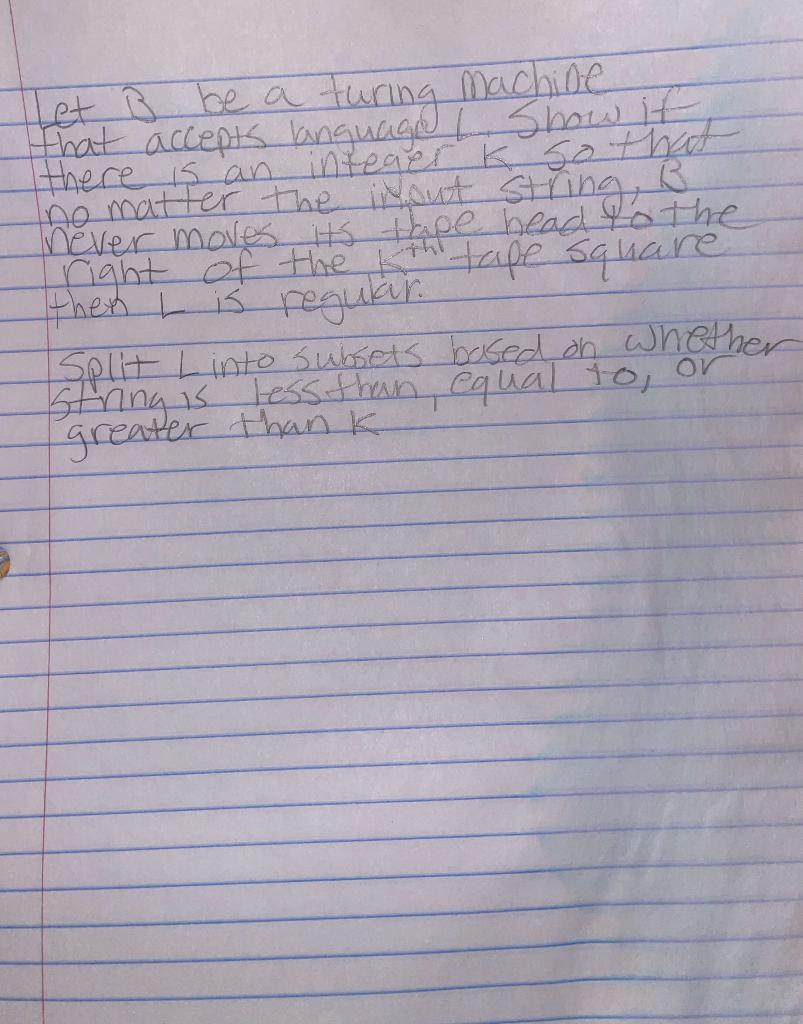 Let B be a turing machine
that accepts language L. Show if
there is an integer K so that
no matter the input string, B
never moves its tape head to the
right of the Kth tape square
then L is regular.
Split L into subsets based on whether
string is less than, equal to, or
greater than K